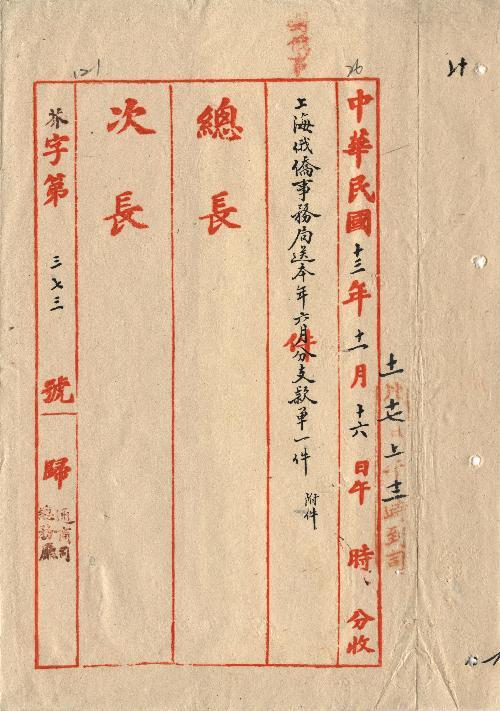 中華民國十三年十一月十六日午時分收
十一 十七 上 十二
到司
上海俄僑事務局送本年六月分支款單一件 附件
件
總長
次長
芥字第三七三號歸
通商司
總務廳